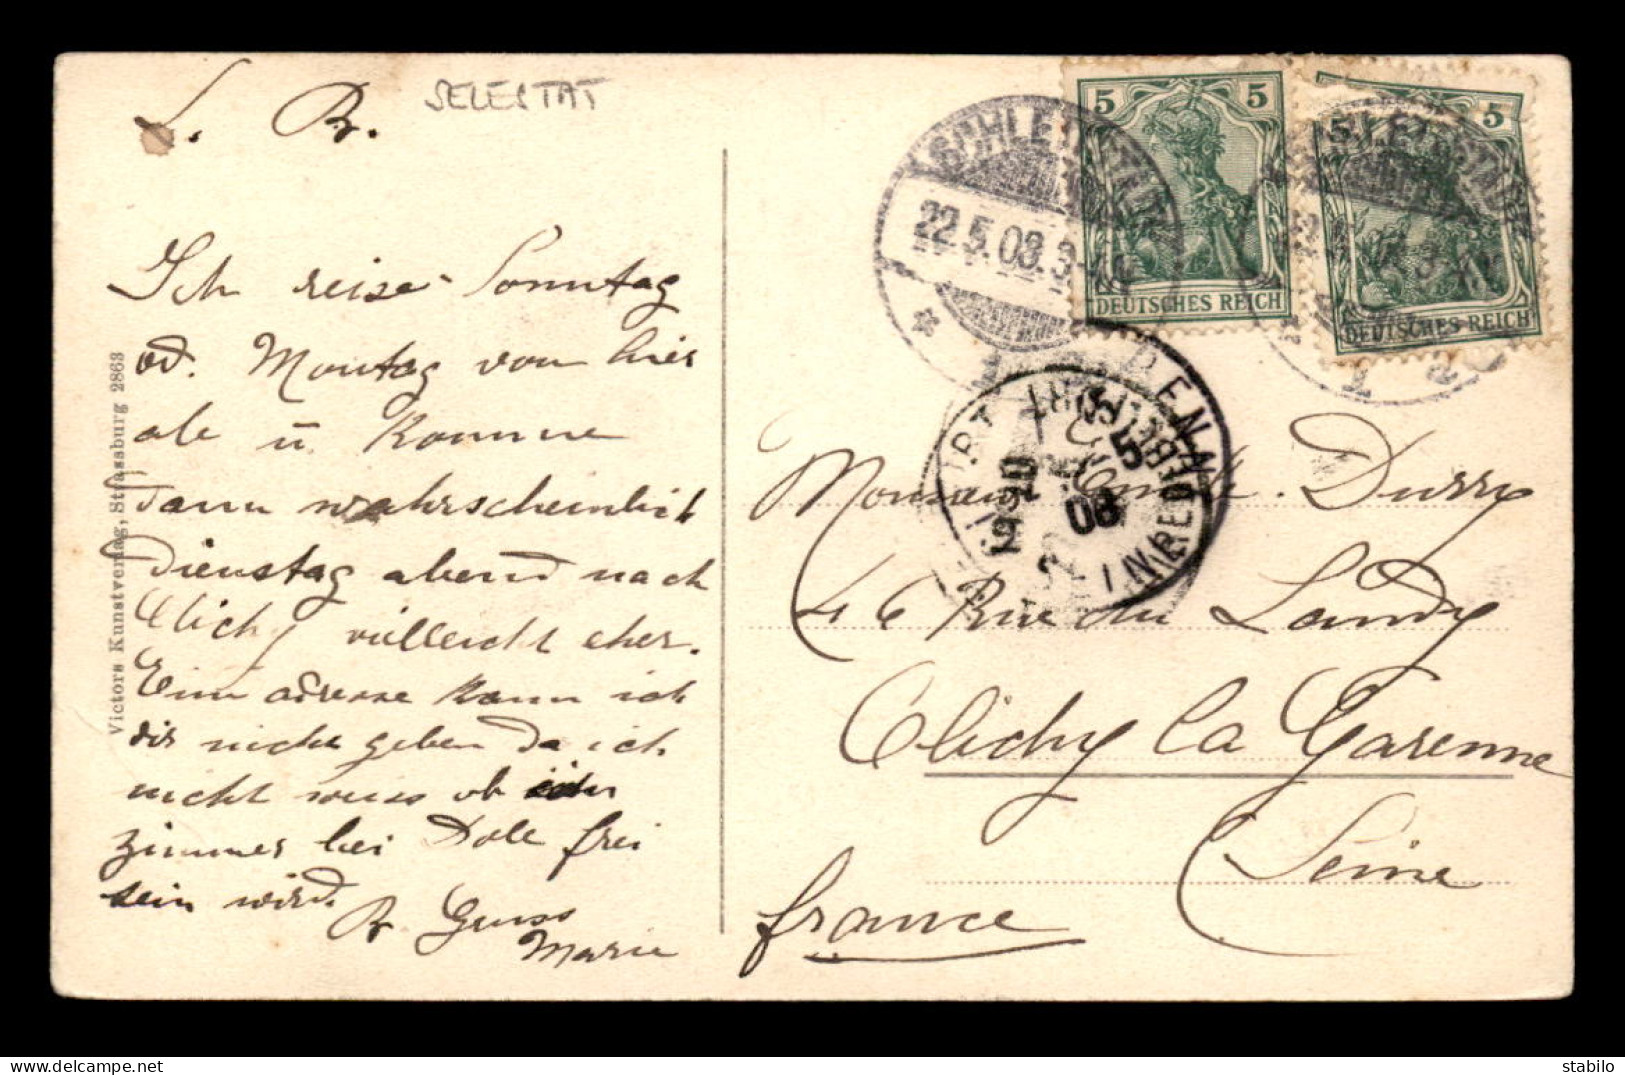 L. B.
SELESTAT
Ich reise Sonntag
od. Montag von hier
ab u. komme
dann wahrscheinlich
Dienstag abend nach
Clichy villeicht eher.
Eine adresse kann ich
dir nicht geben da ich
nicht weiss ob
zimmer bei Dole frei
sein wird.
B. Gruss
Marie
Victors Kunstverlag, Strassburg 2863
5 5
DEUTSCHES REICH
5 5
DEUTSCHES REICH
SCHLETTSTADT
22.5.08.3-4N
08
Monsieur Emile Durry
46 Rue du Landy
Clichy la Garenne
Seine
france
stabilo